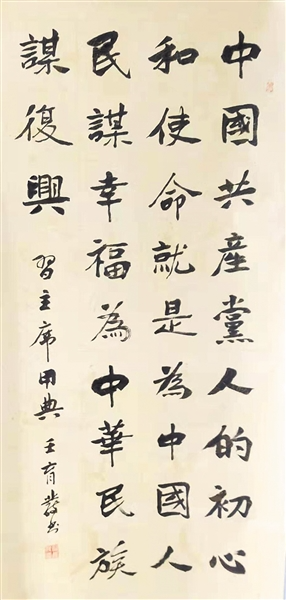 中國共產黨人的初心
和使命就是為中國人
民謀幸福為中華民族
謀復興
習主席用典 王育